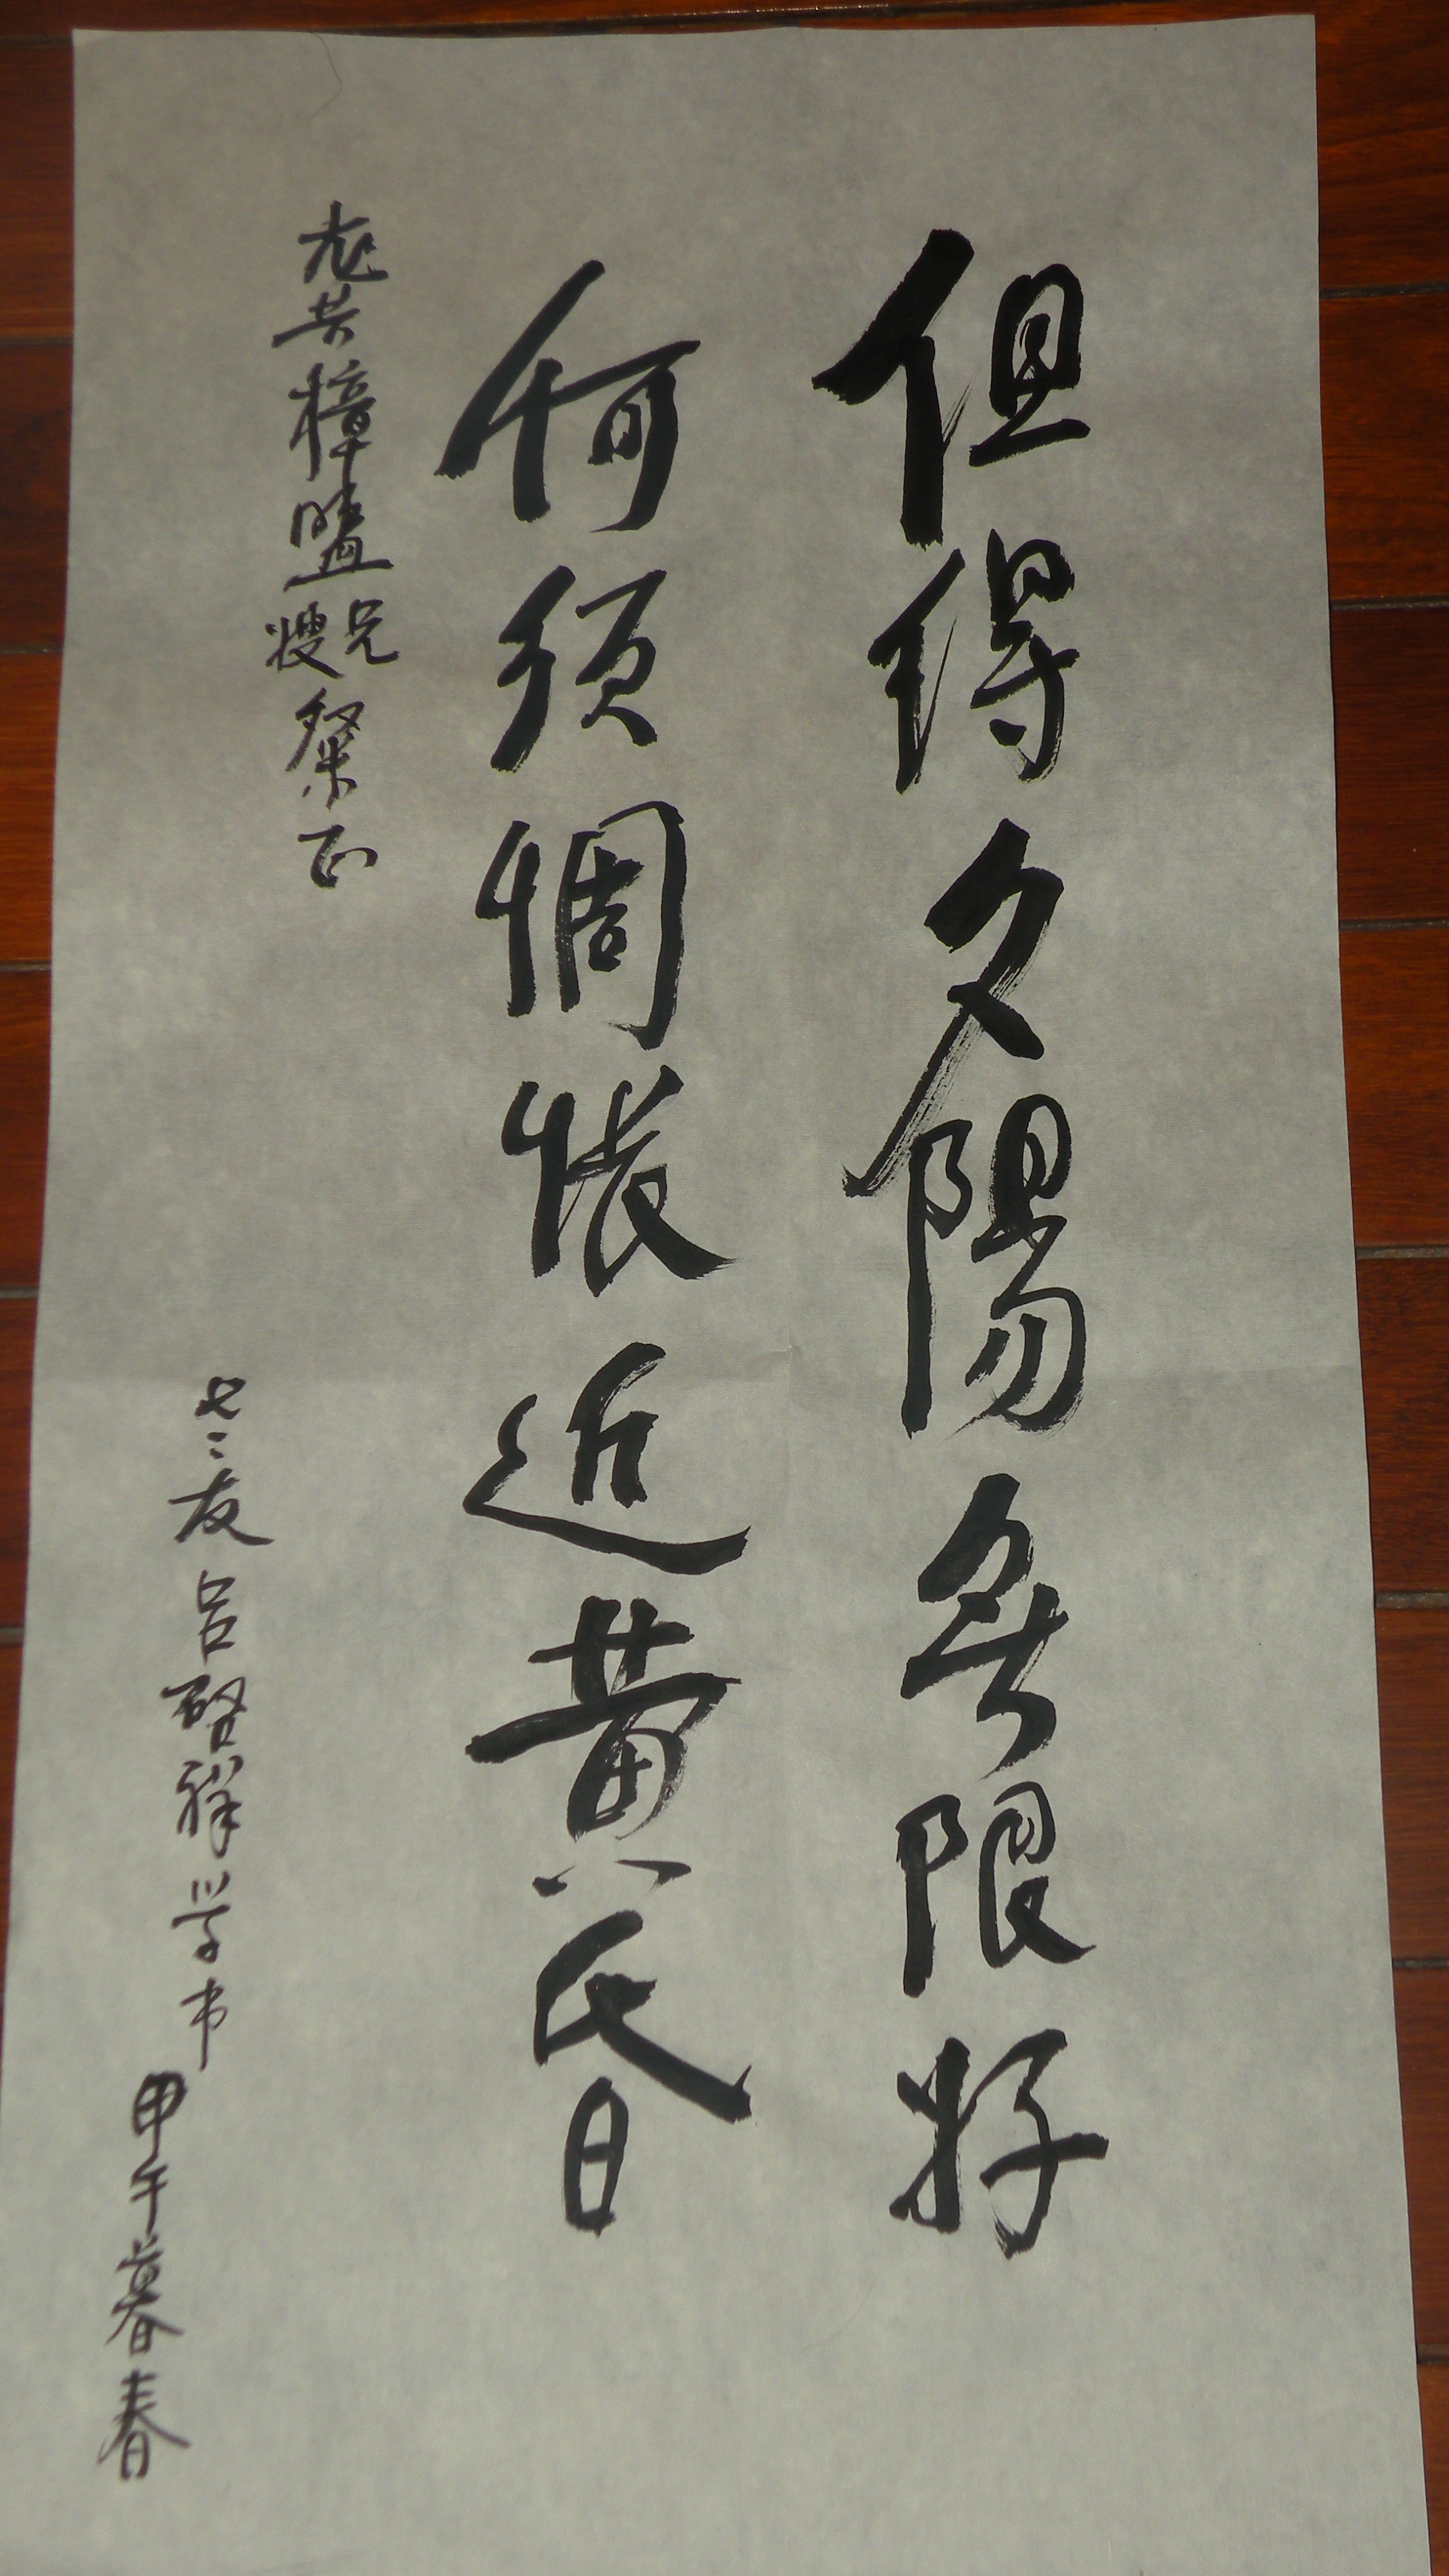 但得夕陽無限好
何須惆悵近黃昏
共樟兄嫂粲正
七二友呂啓祥学书
甲午暮春